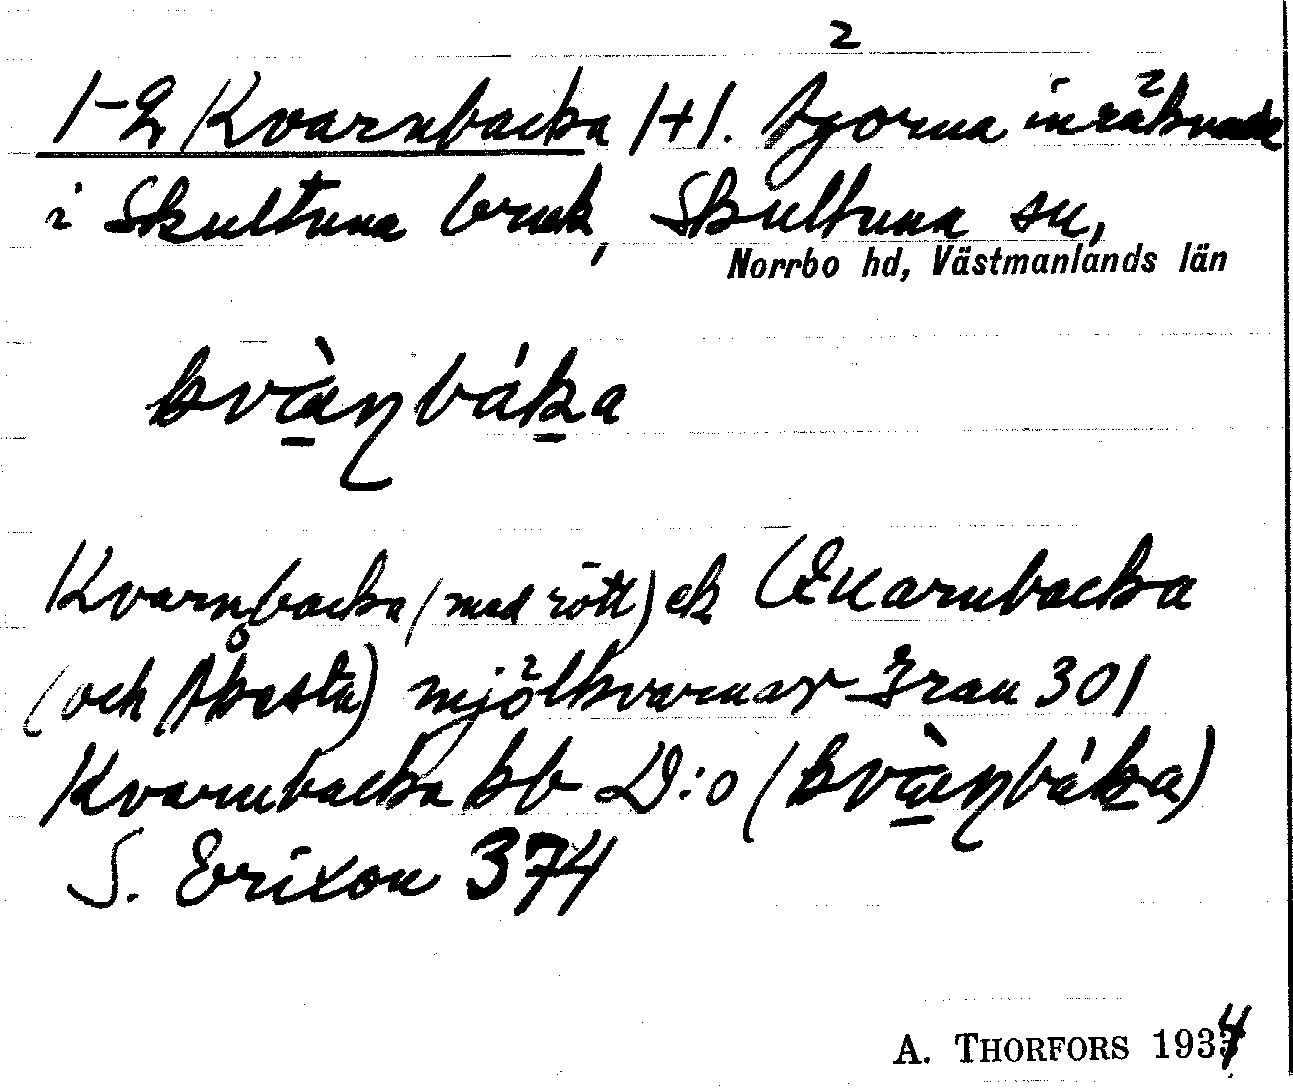 1-2 Kvarnbacka 1+1. Ägorna inräknade
i Skultuna bruk, Skultuna sn,
Norrbo hd, Västmanlands län
kvàɳbáka
Kvarnbacka (med rött) ek Qvarnbacka
(och Åkesta) mjölkvarnar Gran 301
Kvarnbacka kb D:o (kvàɳbáka)
S. Erixon 374
A. THORFORS 1934